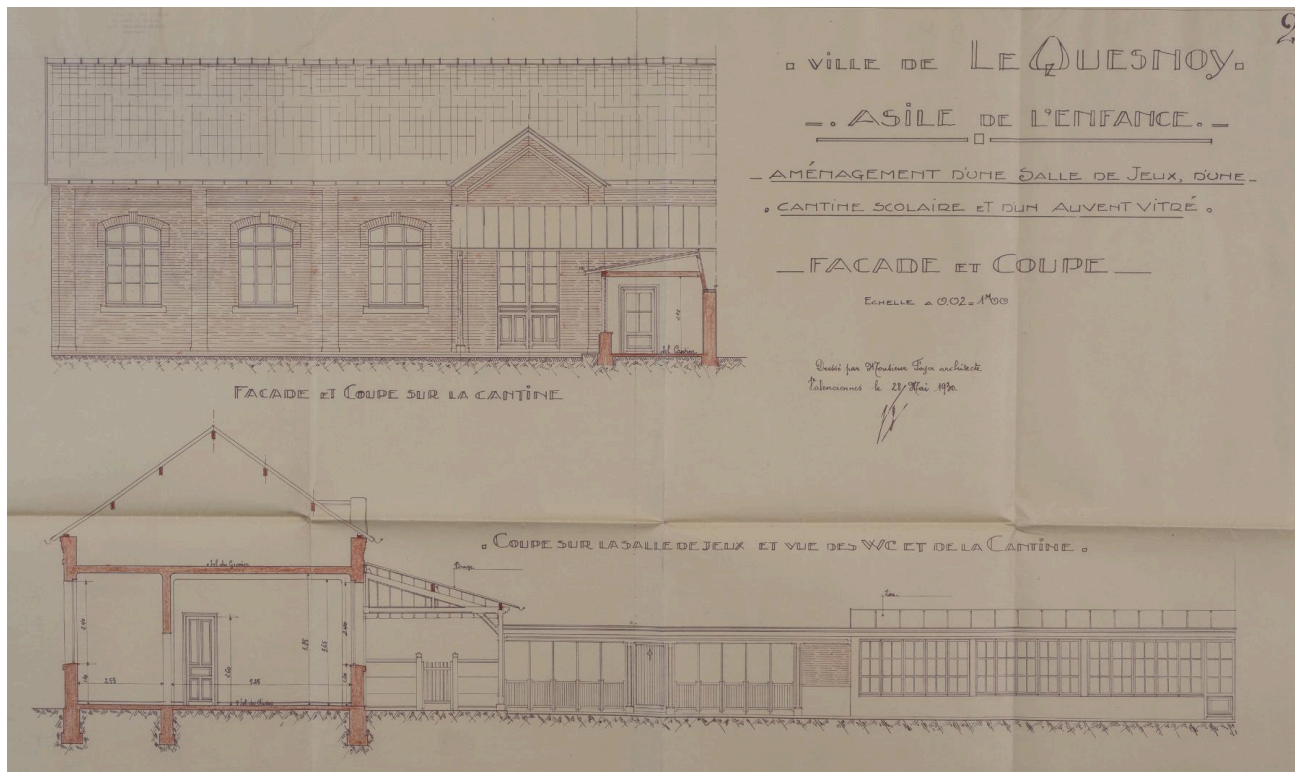 2
. VILLE DE LE QUESNOY.
_. ASILE DE L'ENFANCE. _
_ AMÉNAGEMENT D'UNE SALLE DE JEUX, D'UNE _
. CANTINE SCOLAIRE ET D'UN AUVENT VITRÉ .
_ FACADE ET COUPE _
ECHELLE A 0.02 = 1M00
Dressé par Monsieur architecte
Valenciennes le 28 Mai 1930
FACADE ET COUPE SUR LA CANTINE
. COUPE SUR LA SALLE DE JEUX ET VUE DES WC ET DE LA CANTINE .
Sol du Grenier
2.40
2.60
3.65
2.40
2.53